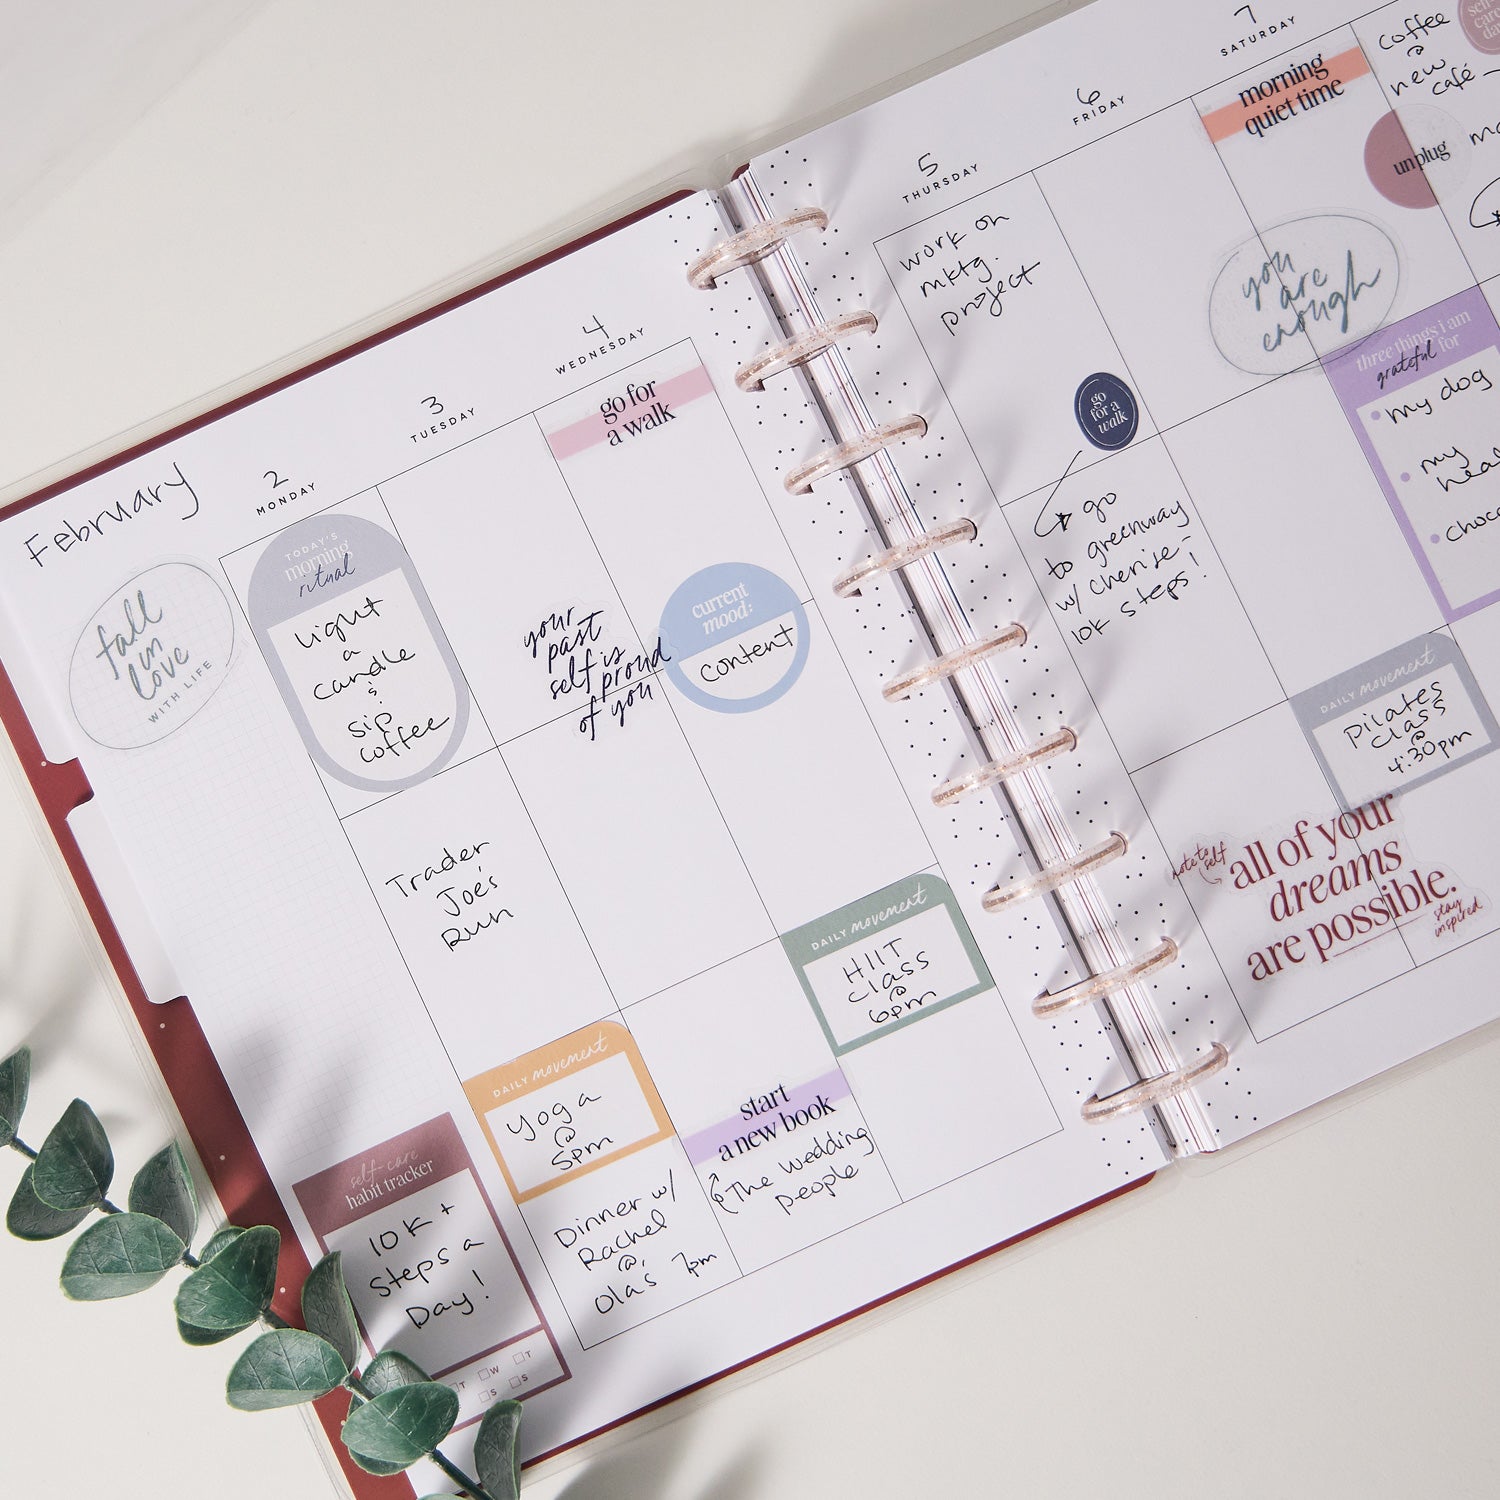 February
fall
in
love
WITH LIFE
self-care
habit tracker
10K +
Steps a
Day!
T W T
S S
2
MONDAY
TODAY'S
morning
ritual
Light
a
candle
&
sip
coffee
Trader
Joe's
Run
DAILY movement
Yoga
@
5pm
Dinner w/
Rachel
@
Ola's 7pm
3
TUESDAY
your
past
self is
proud
of you
start
a new book
The Wedding
people
4
WEDNESDAY
go for
a walk
current
mood:
content
DAILY movement
HIIT
class
@
6pm
5
THURSDAY
work on
mktg.
project
go
for a
walk
go
to greenway
w/ cherise-
10k steps!
6
FRIDAY
note to
self
all of your
dreams
are possible.
stay
inspired
7
SATURDAY
morning
quiet time
you
are
enough
DAILY movement
Pilates
class
@
4:30pm
self
care
day
coffee
@
new
café
unplug
three things i am
grateful for
my dog
my
choco